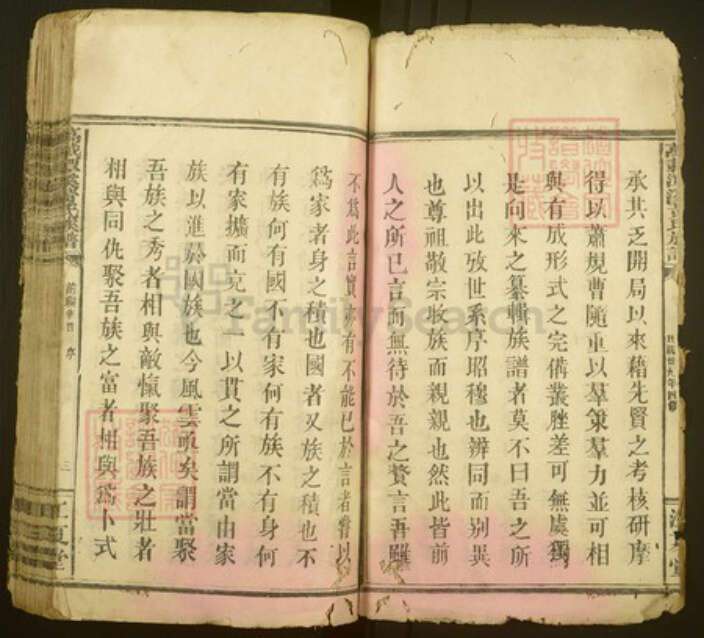 承其乏開局以來藉先賢之考核研摩
得以蕭規曹隨重以羣策羣力並可相
與有成形式之完備叢脞差可無虞獨
是向來之纂輯族譜者莫不曰吾之所
以出此攷世系序昭穆也辨同而別異
也尊祖敬宗收族而親親也然此皆前
人之所已言而無待於吾之贅言吾雖
不爲此言實亦有不能已於言者嘗以
爲家者身之積也國者又族之積也不
有族何有國不有家何有族不有身何
有家擴而充之一以貫之所謂當由家
族以進於國族也今風雲亟矣謂當聚
吾族之秀者相與敵愾聚吾族之壯者
相與同仇聚吾族之富者相與爲卜式
序
三
江夏堂
FamilySearch